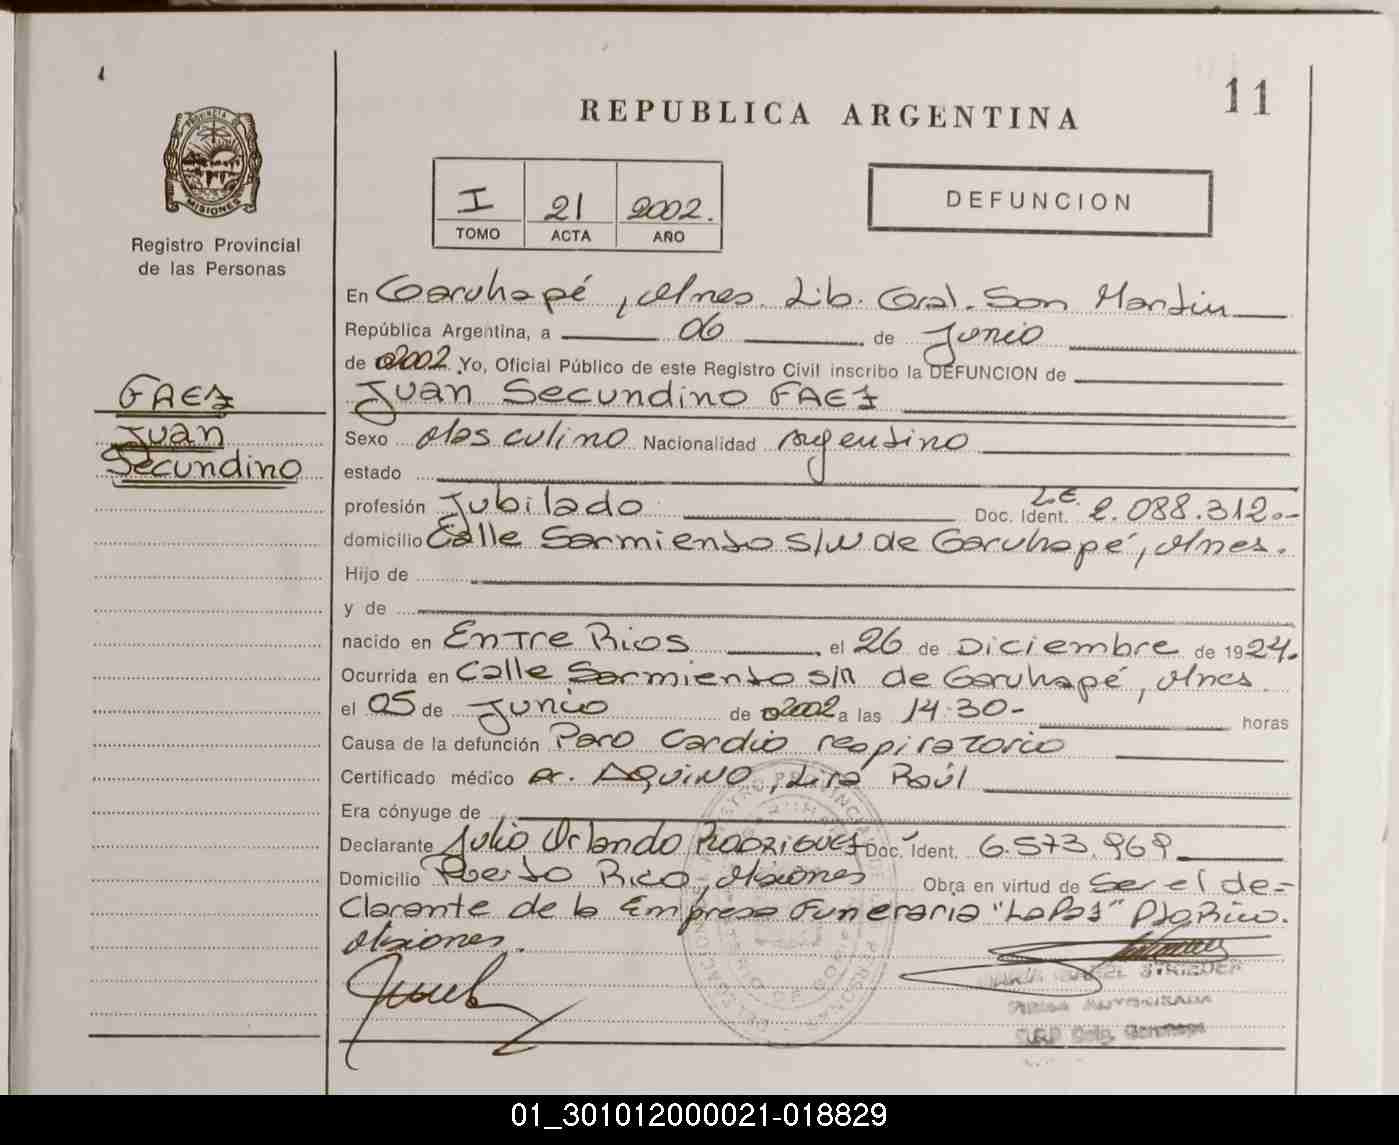 11
REPUBLICA ARGENTINA
PROVINCIA DE
MISIONES
Registro Provincial
de las Personas
I 21 2002.
TOMO ACTA AÑO
DEFUNCION
En Garuhapé, Mnes. Lib. Gral. San Martin
República Argentina, a 06 de Junio
de 2002. Yo, Oficial Público de este Registro Civil inscribo la DEFUNCION de
Juan Secundino FAEZ
FAEZ
Juan
Secundino
Sexo Masculino Nacionalidad Argentino
estado
profesión Jubilado Doc. Ident. L.E. 2.088.312.-
domicilio Calle Sarmiento S/N de Garuhapé, Mnes.
Hijo de
y de
nacido en Entre Rios el 26 de Diciembre de 1924.
Ocurrida en Calle Sarmiento s/n de Garuhapé, Mnes.
el 05 de Junio de 2002 a las 14:30- horas
Causa de la defunción Paro Cardio respiratorio
Certificado médico Dr. AQUINO, Lira Raúl
Era cónyuge de
Declarante Julio Orlando RODRIGUEZ Doc. Ident. 6.573.969
Domicilio Puerto Rico, Misiones Obra en virtud de Ser el de-
clarante de la Empresa Funeraria "La Paz" Pto Rico.
Misiones.
01_301012000021-018829